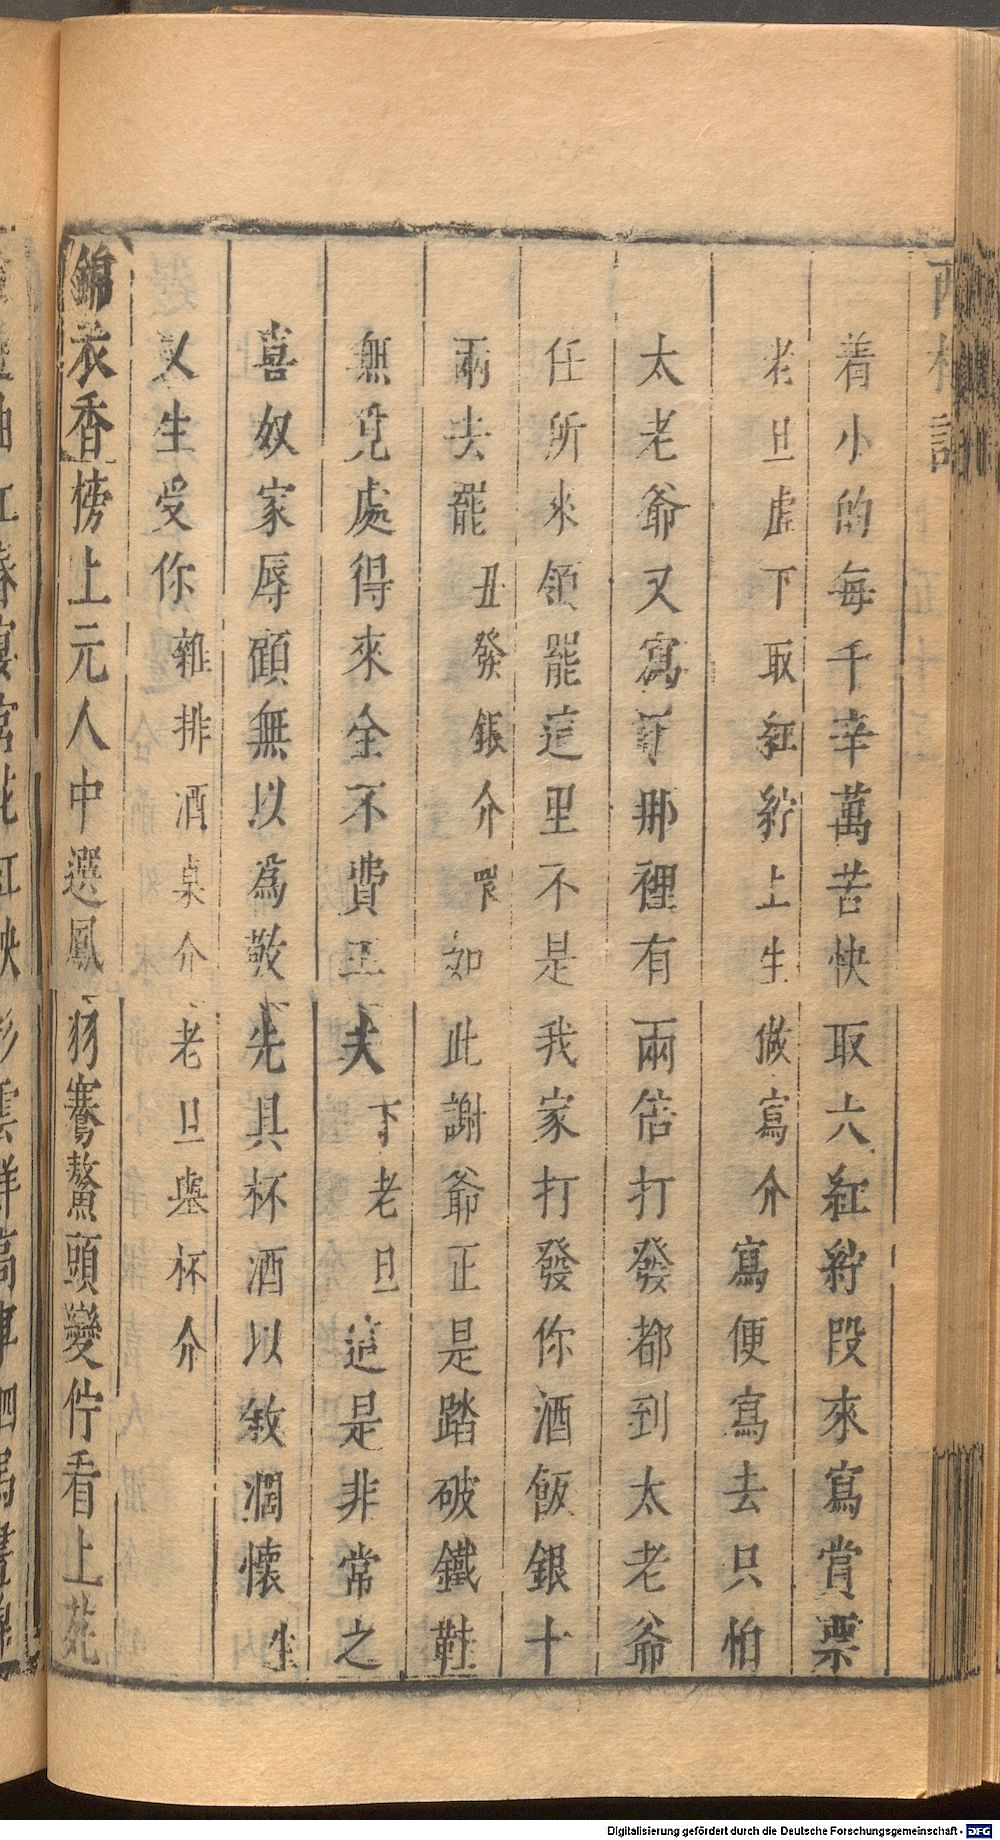 着小的每千辛萬苦快取六紅紵段來寫賞票
老旦虛下取紅紵上生做寫介寫便寫去只怕
太老爺又寫了那裡有兩倍打發都到太老爺
任所來領罷這里不是我家打發你酒飯銀十
兩去罷丑發銀介眾如此謝爺正是踏破鐵鞋
無覓處得來全不費工夫下老旦這是非常之
喜奴家辱顧無以為敬先具杯酒以敘濶懷生
乂生受你雜排酒桌介老旦與杯介
錦衣香榜上元人中選鳳翏騫鰲頭變佇看上苑
Digitalisierung gefördert durch die Deutsche Forschungsgemeinschaft - DFG